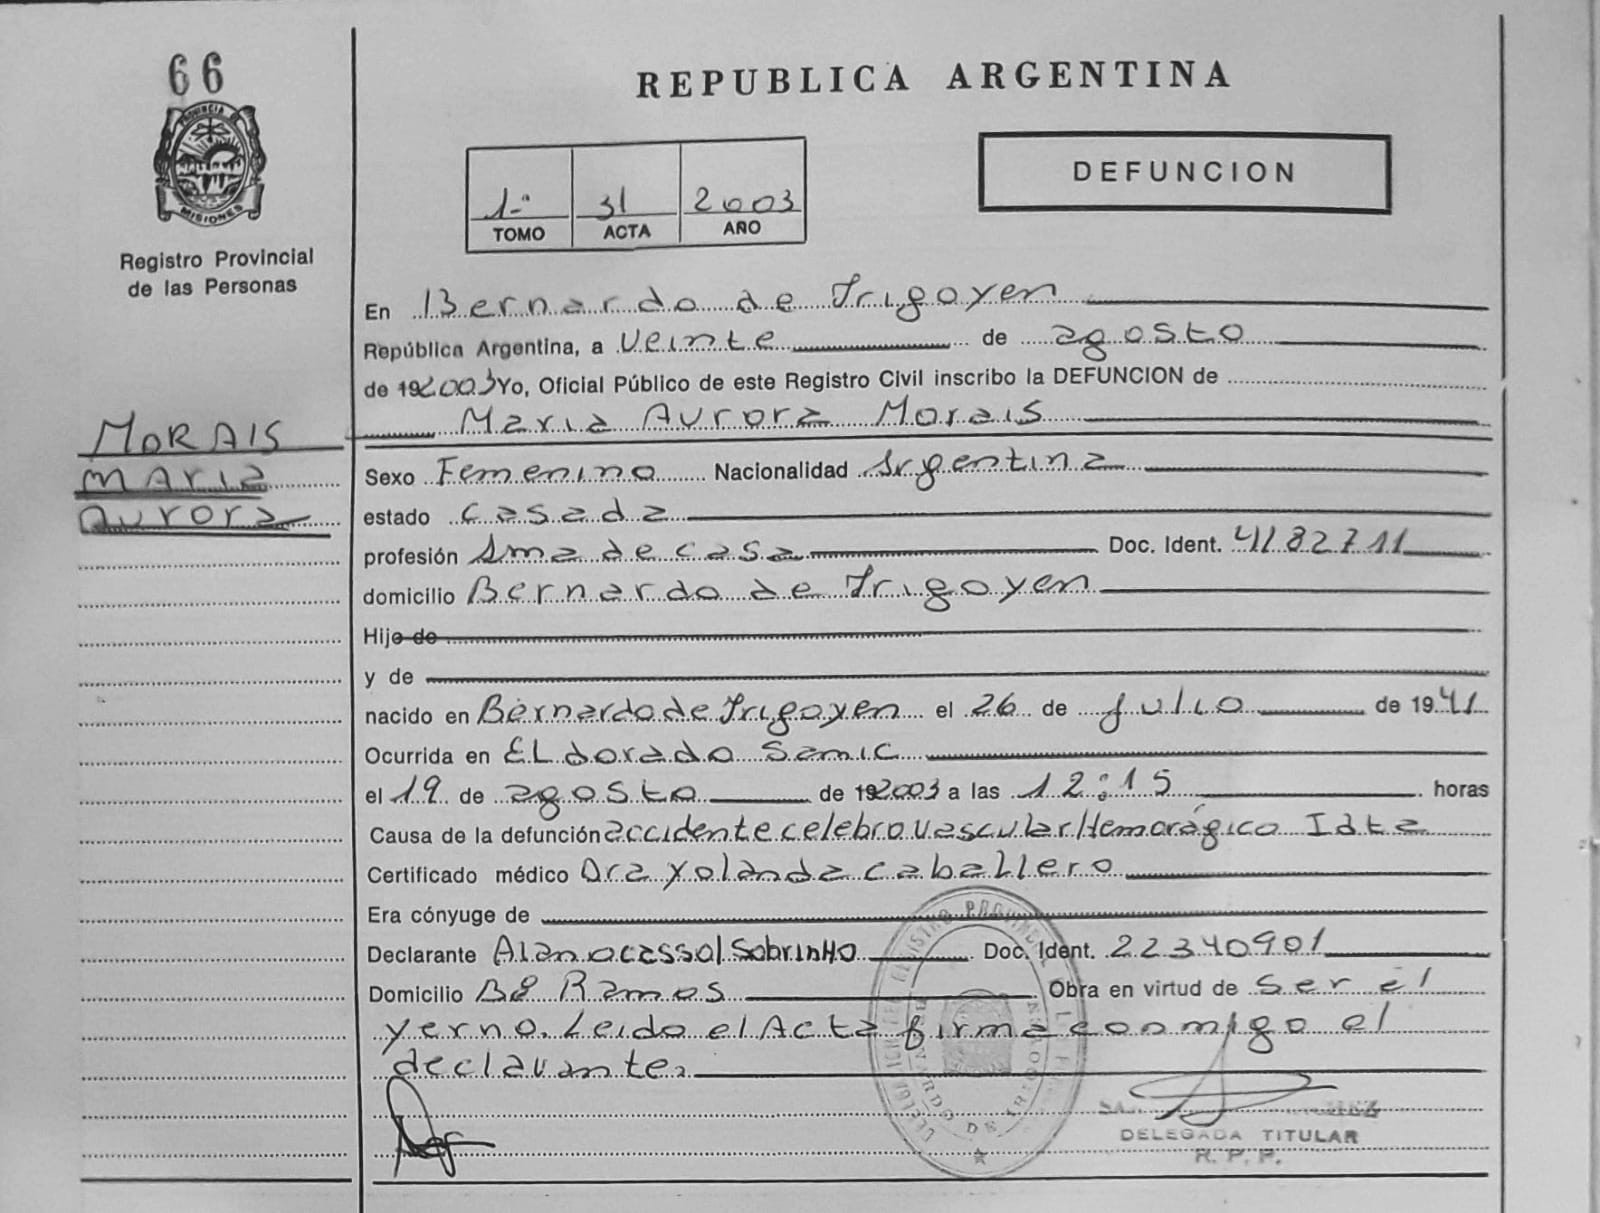 66
PROVINCIA DE
MISIONES
Registro Provincial
de las Personas
REPUBLICA ARGENTINA
DEFUNCION
1-ª 31 2003
TOMO ACTA AÑO
En Bernardo de Irigoyen
República Argentina, a veinte de agosto
de 192003 Yo, Oficial Público de este Registro Civil inscribo la DEFUNCION de
Maria Aurora Morais
MORAIS
MARIA
AURORA
Sexo Femenino Nacionalidad Argentina
estado casada
profesión Ama de casa Doc. Ident. 4182711
domicilio Bernardo de Irigoyen
Hijo de
y de
nacido en Bernardo de Irigoyen el 26 de Julio de 1941
Ocurrida en ELdorado Samic
el 19 de agosto de 192003 a las 12:15 horas
Causa de la defunción accidente celebrovascular/Hemorágico Idta
Certificado médico Dra Yolanda caballero
Era cónyuge de
Declarante Alan Sobrinho Doc. Ident. 22340901
Domicilio Bº Ramos Obra en virtud de ser el
yerno. Leido el Acta firma conmigo el
declarante.
DE IRIGOYEN
DELEGADA TITULAR
R. P. P.